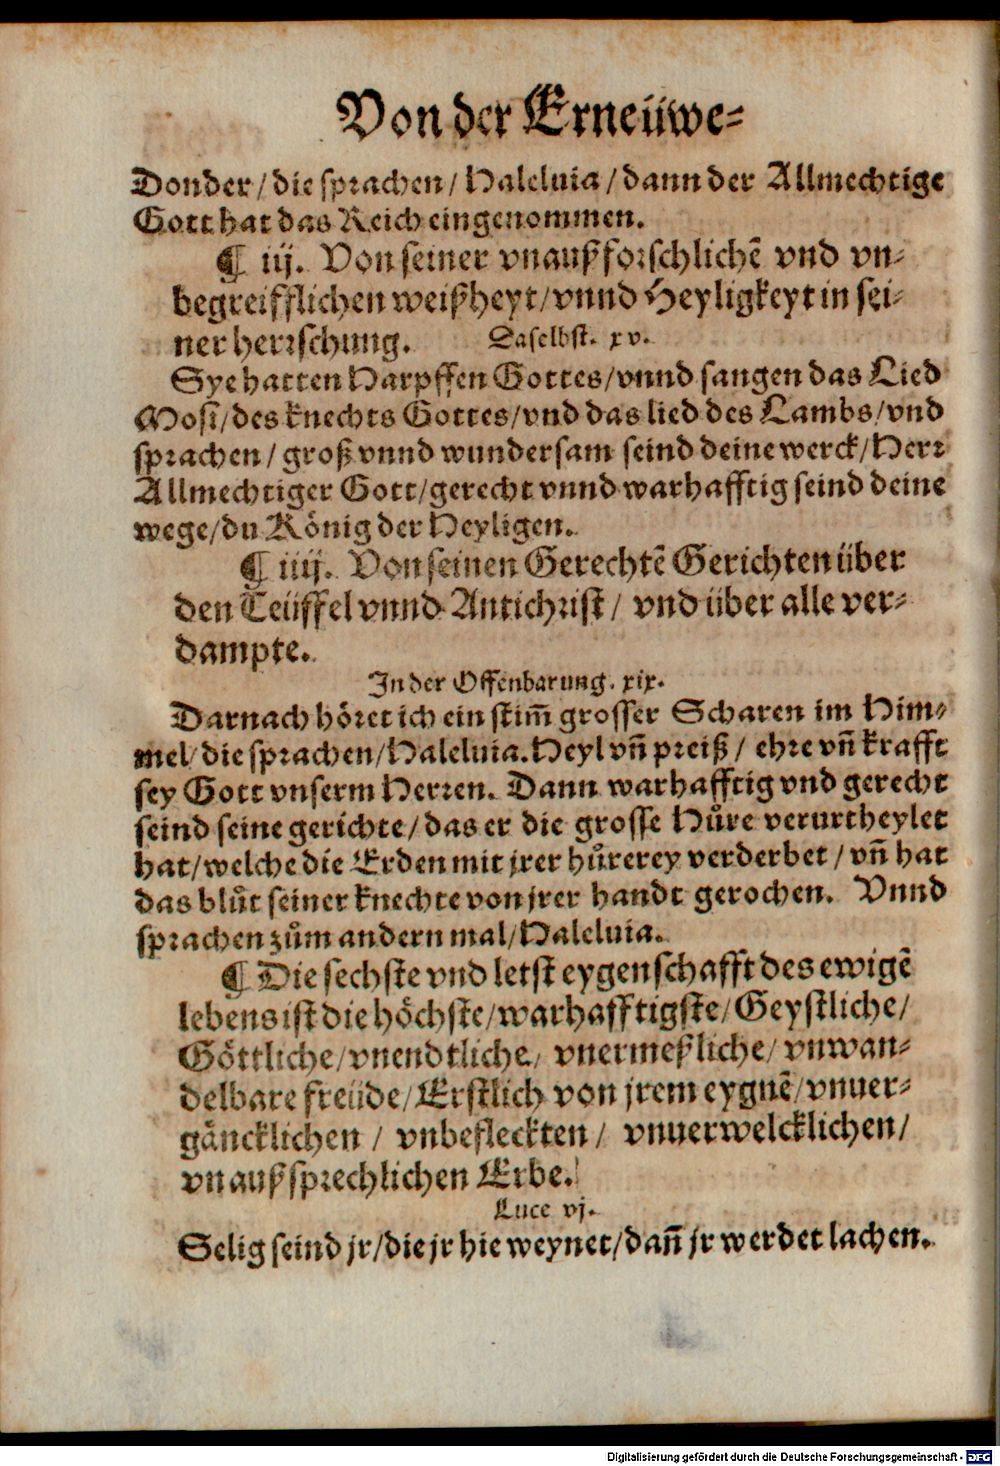 Von der Erneüwe⸗
Donder/die sprachen/Haleluia/dann der Allmechtige
Gott hat das Reich eingenommen.
¶ iij. Von seiner vnaußforschlichẽ vnd vn⸗
begreifflichen weißheyt/vnnd Heyligkeyt in sei⸗
ner herrschung. Daselbst. xv.
Sye hatten Harpffen Gottes/vnnd sangen das Lied
Mosi/des knechts Gottes/vnd das lied des Lambs/vnd
sprachen/groß vnnd wundersam seind deine werck/Herr
Allmechtiger Gott/gerecht vnnd warhafftig seind deine
wege/du König der Heyligen.
¶ iiij. Von seinen Gerechtẽ Gerichten über
den Teüffel vnnd Antichrist/ vnd über alle ver⸗
dampte.
In der Offenbarung. xix.
Darnach höret ich ein stim̃ grosser Scharen im Him⸗
mel/die sprachen/Haleluia. Heyl vñ preiß/ ehre vñ krafft
sey Gott vnserm Herren. Dann warhafftig vnd gerecht
seind seine gerichte/das er die grosse Hůre verurtheylet
hat/welche die Erden mit jrer hůrerey verderbet/vñ hat
das blůt seiner knechte von jrer handt gerochen. Vnnd
sprachen zům andern mal/Haleluia.
¶ Die sechste vnd letst eygenschafft des ewigẽ
lebens ist die höchste/warhafftigste/Geystliche/
Göttliche/vnendtliche/ vnermeßliche/vnwan⸗
delbare freüde/Erstlich von jrem eygnẽ/vnuer⸗
gäncklichen/ vnbefleckten/ vnuerwelcklichen/
vnaußsprechlichen Erbe.
Luce vj.
Selig seind jr/die jr hie weynet/dañ jr werdet lachen.
Digitalisierung gefördert durch die Deutsche Forschungsgemeinschaft - DFG